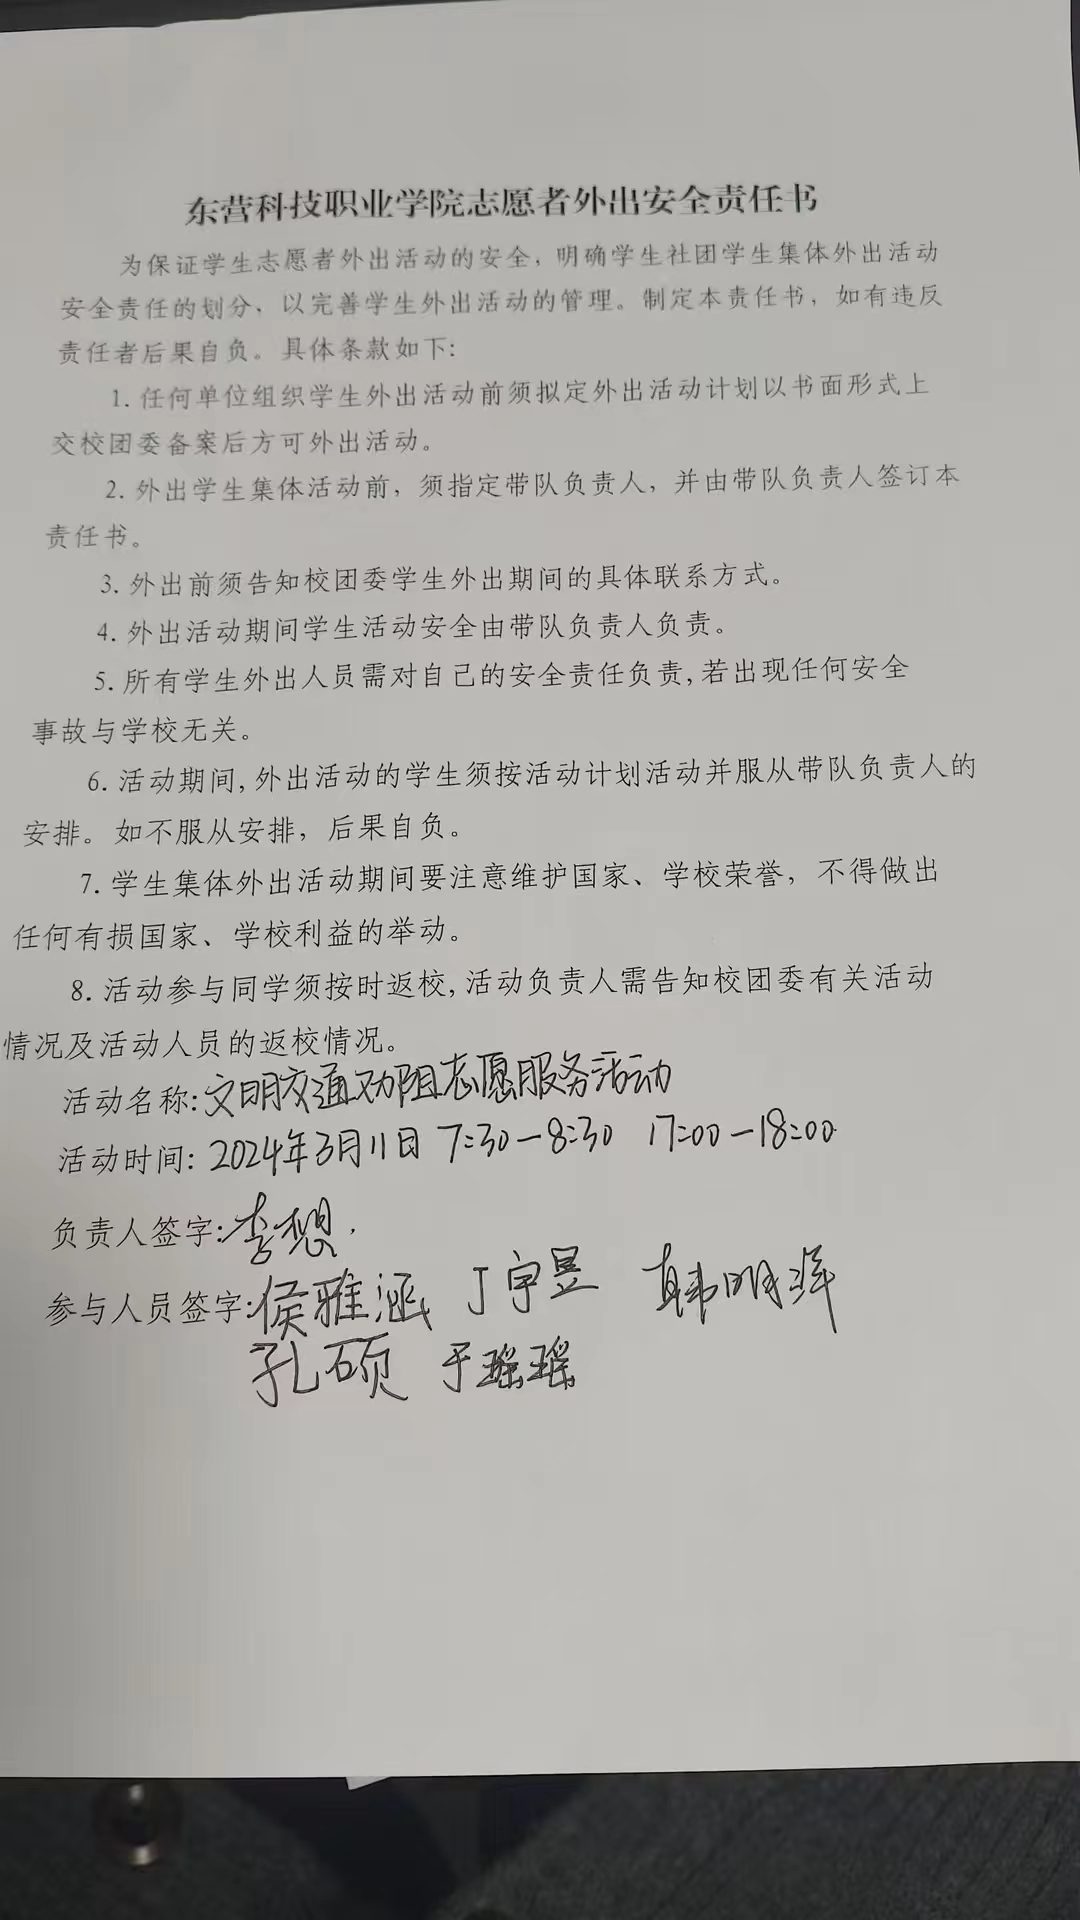 东营科技职业学院志愿者外出安全责任书
为保证学生志愿者外出活动的安全，明确学生社团学生集体外出活动
安全责任的划分、以完善学生外出活动的管理。制定本责任书，如有违反
责任者后果自负。具体条款如下:
1. 任何单位组织学生外出活动前须拟定外出活动计划以书面形式上
交校团委备案后方可外出活动。
2. 外出学生集体活动前，须指定带队负责人，并由带队负责人签订本
责任书。
3. 外出前须告知校团委学生外出期间的具体联系方式。
4. 外出活动期间学生活动安全由带队负责人负责。
5. 所有学生外出人员需对自己的安全责任负责,若出现任何安全
事故与学校无关。
6. 活动期间,外出活动的学生须按活动计划活动并服从带队负责人的
安排。如不服从安排，后果自负。
7. 学生集体外出活动期间要注意维护国家、学校荣誉，不得做出
任何有损国家、学校利益的举动。
8. 活动参与同学须按时返校,活动负责人需告知校团委有关活动
情况及活动人员的返校情况。
活动名称:文明交通劝阻志愿服务活动
活动时间: 2024年3月11日 7:30-8:30 17:00-18:00
负责人签字:李想.
参与人员签字:侯雅涵 丁宇昱 韩明洋
孔硕 于瑶瑶